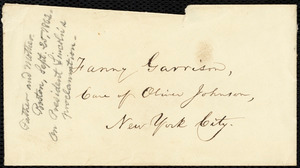 Father and Mother.
Boston, Sept. 25, 1862.
On President Lincoln's
proclamation.
Fanny Garrison,
Care of Oliver Johnson,
New York City.